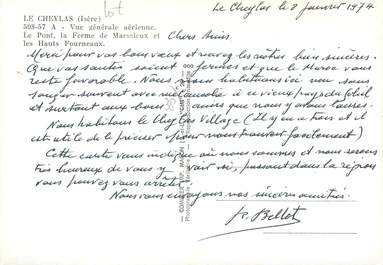 LE CHEYLAS (Isère)
508-57 A - Vue générale aérienne.
Le Pont, la Ferme de Marseieux et
les Hauts Fourneaux.
lot
Le Cheylas le 8 janvier 1974
Chers Amis
Merci pour vos bons vœux et recevez les nôtres bien sincères.
Que vos santés soient fermes et que le Maroc vous
reste favorable. Nous nous habituons ici non sans
songer souvent avec mélancolie à ce vieux pays du soleil
et surtout aux bons amis que nous y avons laissés.
Nous habitons le Cheylas Village (Il y en a trois et il
est utile de le préciser pour nous trouver facilement)
Cette carte vous indique où nous sommes et nous serons
très heureux de vous y voir si, passant dans la région
vous pouvez vous arrêter.
Nous vous envoyons nos sincères amitiés.
Bellot